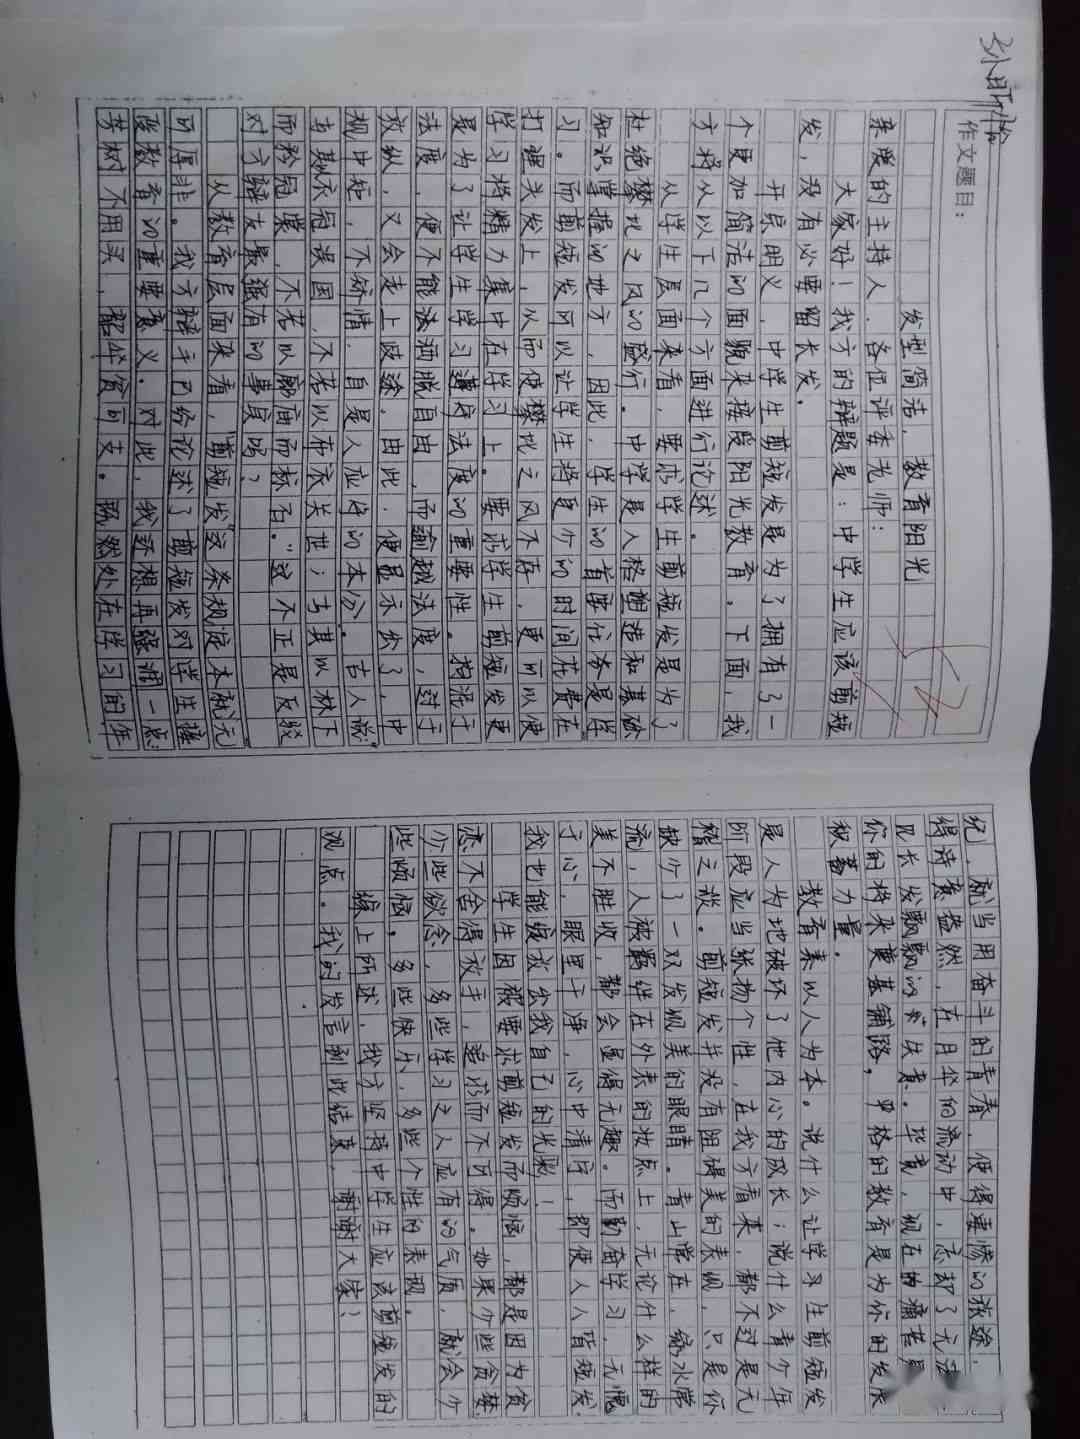 作文题目：
发型简洁，教育阳光
亲爱的主持人、各位评委老师：
大家好！我方的辩题是：中学生应该剪短
发，没有必要留长发。
开宗明义，中学生剪短发是为了拥有了一
个更加简洁的面貌来接受阳光教育。下面，我
方将从以下几个方面进行论述。
从学生层面来看，要求学生剪短发是为了
杜绝攀比之风的盛行。中学是人格塑造和基础
知识掌握的地方，因此，学生的首要任务是学
习。而剪短发可以让学生将更少的时间花费在
打理头发上，从而使攀比之风不存，更可以使
学习将精力集中在学习上。要求学生剪短发更
是为了让学生学习遵守法度的重要性。拘泥于
法度，便不能法洒脱自由，而逾越法度，过于
放纵，又会走上歧途，由此，便显示出了，中
规中矩，不矫情，自是人应持的本分。古人说"
与其以衣冠误国，不若以布衣关世；与其以林下
而矜冠裳，不若以廊庙而标泉石。"这不正是反驳
对方辩友最强有的事贠吗？
从教育层面来看，"剪短发"这条规定本就无
可厚非。我方辩手已给论述了剪短发对学生接
受教育的重要意义，对此，我还想再强调一点：
芳树不用买，韶华贫可支。既然处在学习的年
纪，就当用奋斗的青春，使得要惨的旅途，
得诗意盎然，在月华的流动中，忘却了无法
民长发飘飘的"失意。毕竟，现在的痛苦是
你的将来奠基铺路，严格的教育是为你的发展
积蓄力量。
教育素以人为本。说什么让学习生剪短发
是人为地破坏了他内心的成长；说什么青少年
阶段应当张扬个性，在我方看来，都不过是无
稽之谈。剪短发并没有阻碍美的表现，只是你
缺少了一双发现美的眼睛。青山常在，绿水常
流，人被羁绊在外表的妆点上，无论什么样的
美不胜收，都会显得无趣。而勤奋学习，无愧
于心，眼里干净，心中清宁，即使人人皆短发，
我也能绽放出我自己的光彩！
学生因被要求剪短发而烦恼，都是因为贪
恋不舍得放手，追求而不可得。如果少些贪婪，
少些欲念，多些学习之人应有的气质，就会少
些烦恼，多些快乐，多些个性的表现。
综上所述，我方坚持中学生应该剪短发的
观点。我的发言到此结束，谢谢大家！